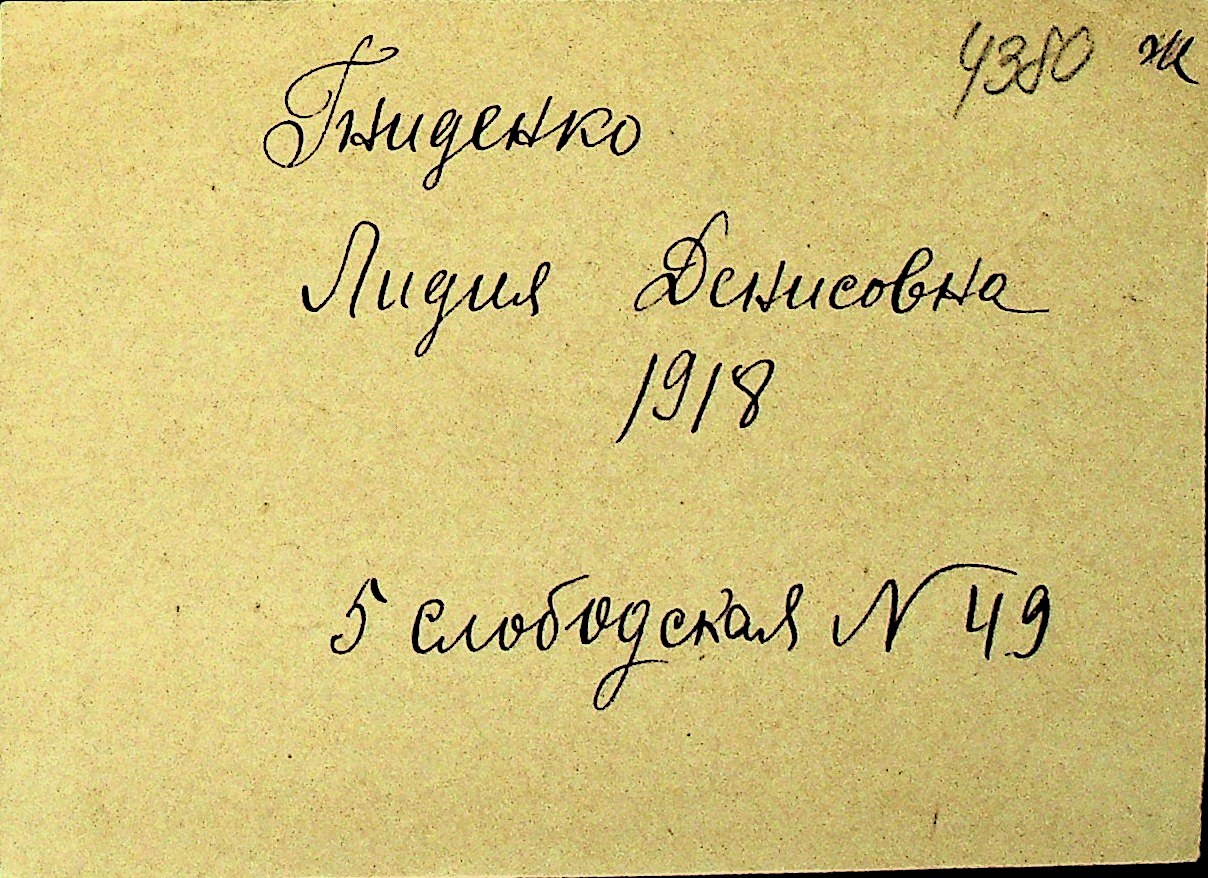 4380 ж
Гниденко
Лидия Денисовна
1918
5 слободская N 49